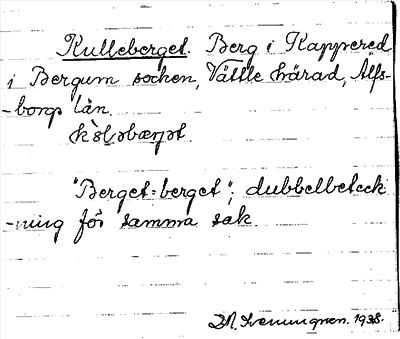 Kulleberget. Berg i Kappered
i Bergum socken, Vättle härad, Älfs-
-borgs län.
"Berget-berget"; dubbelbeteck
-ning för samma sak.
1938.